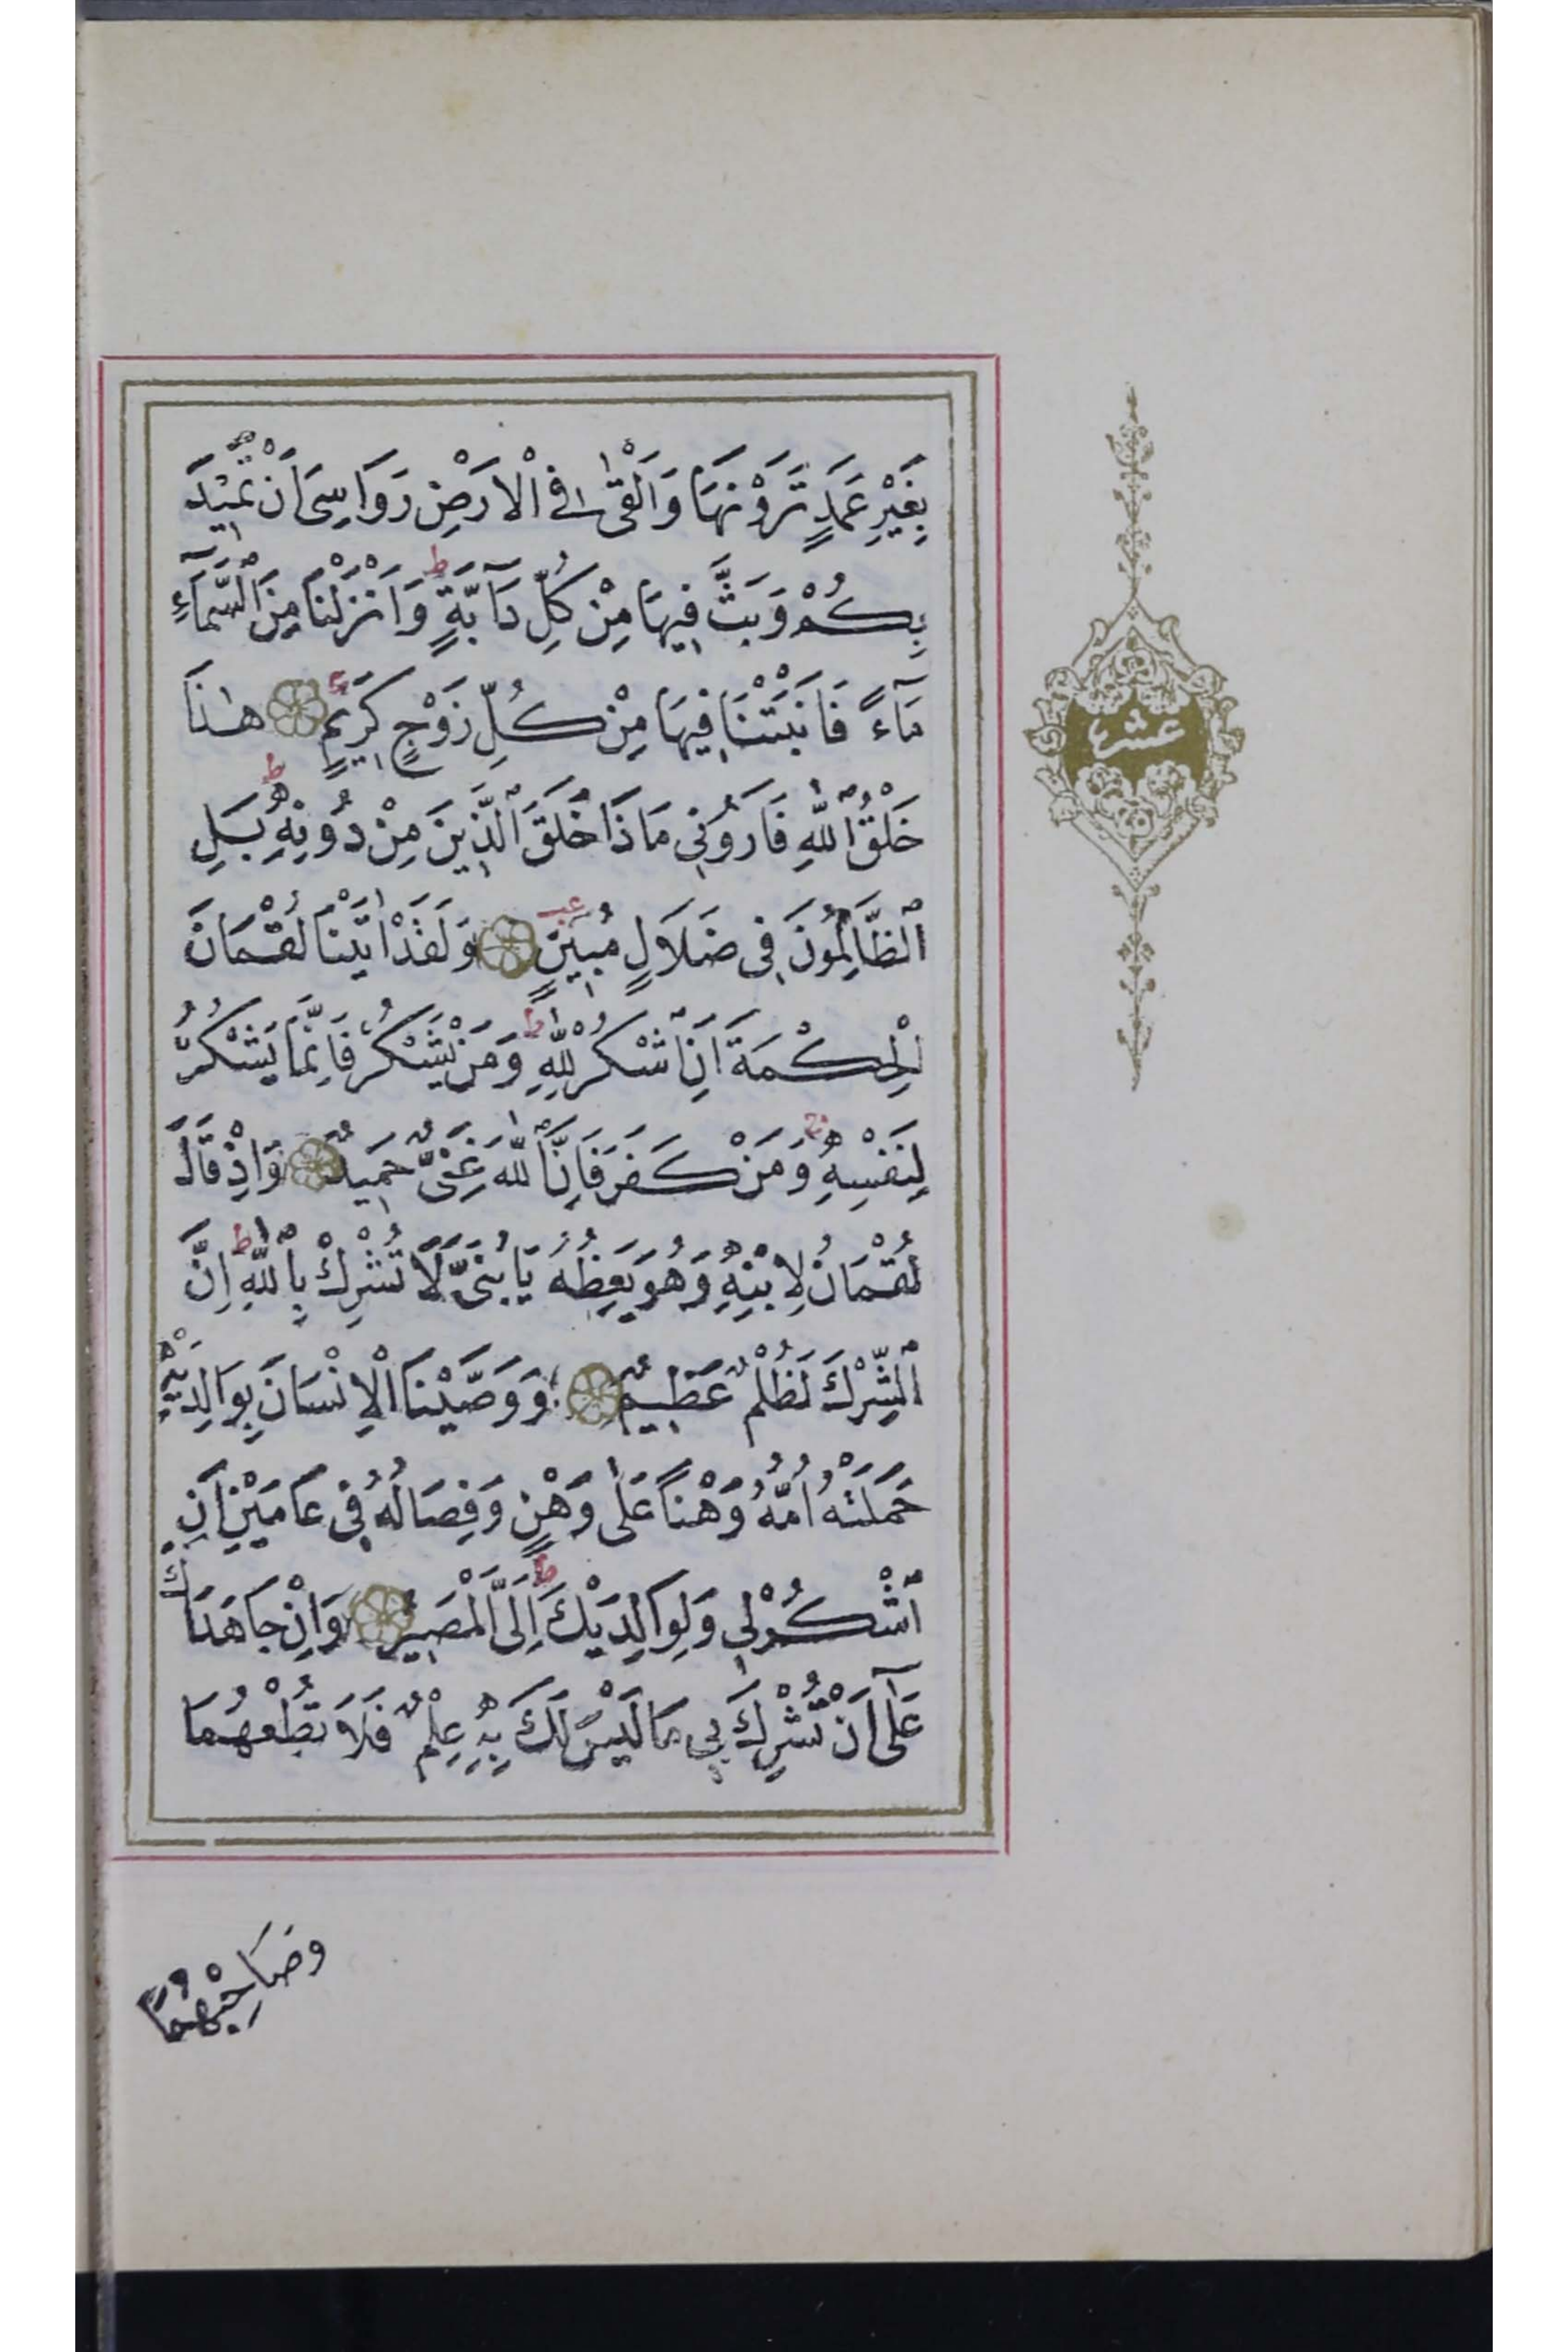 بِغَيْرِ عَمَدٍ تَرَوْنَهَا وَاَلْقٰى فِى الْاَرْضِ رَوَاسِىَ اَنْ تَمٖيدَ
بِكُمْ وَبَثَّ فٖيهَا مِنْ كُلِّ دَٓابَّةٍ ط وَاَنْزَلْنَا مِنَ السَّمَٓاءِ
مَٓاءً فَاَنْبَتْنَا فٖيهَا مِنْ كُلِّ زَوْجٍ كَرٖيمٍ هٰذَا
خَلْقُ اللّٰهِ فَاَرُونٖى مَاذَا خَلَقَ الَّذٖينَ مِنْ دُونِهٖ ط بَلِ
الظَّالِمُونَ فٖى ضَلَالٍ مُبٖينٍ عب وَلَقَدْ اٰتَيْنَا لُقْمَانَ
الْحِكْمَةَ اَنِ اشْكُرْ لِلّٰهِ ط وَمَنْ يَشْكُرْ فَاِنَّمَا يَشْكُرُ
لِنَفْسِهٖ ج وَمَنْ كَفَرَ فَاِنَّ اللّٰهَ غَنِىٌّ حَمٖيدٌ وَاِذْ قَالَ
لُقْمَانُ لِابْنِهٖ وَهُوَ يَعِظُهُ يَا بُنَىَّ لَا تُشْرِكْ بِاللّٰهِ ط اِنَّ
الشِّرْكَ لَظُلْمٌ عَظٖيمٌ وَوَصَّيْنَا الْاِنْسَانَ بِوَالِدَيْهِ
حَمَلَتْهُ اُمُّهُ وَهْنًا عَلٰى وَهْنٍ وَفِصَالُهُ فٖى عَامَيْنِ اَنِ
اشْكُرْ لٖى وَلِوَالِدَيْكَ ط اِلَىَّ الْمَصٖيرُ وَاِنْ جَاهَدَاكَ
عَلٰٓى اَنْ تُشْرِكَ بٖى مَا لَيْسَ لَكَ بِهٖ عِلْمٌ فَلَا تُطِعْهُمَا
وَصَاحِبْهُمَا
عشر